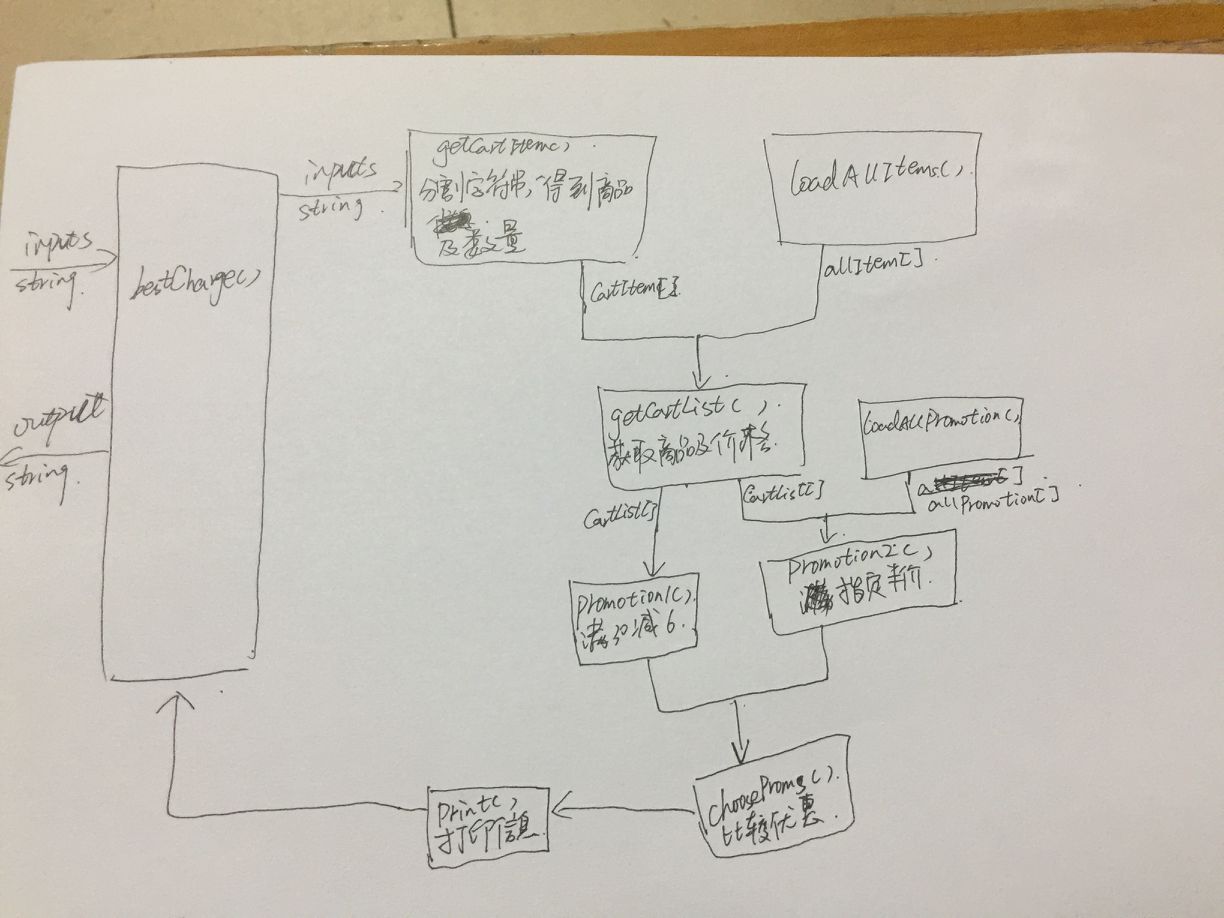 inputs
string.
bestCharge()
output
string.
inputs
string.
getCartItem().
分割字符串,得到商品
及数量
loadAllItems().
CartItem[].
allItem[].
getCartList().
获取商品及价格
loadAllPromotion()
CartList[]
CartList[]
allPromotion[].
promotion1().
满30减6.
promotion2()
指定半价.
choosePromo().
比较优惠.
print()
打印信息.